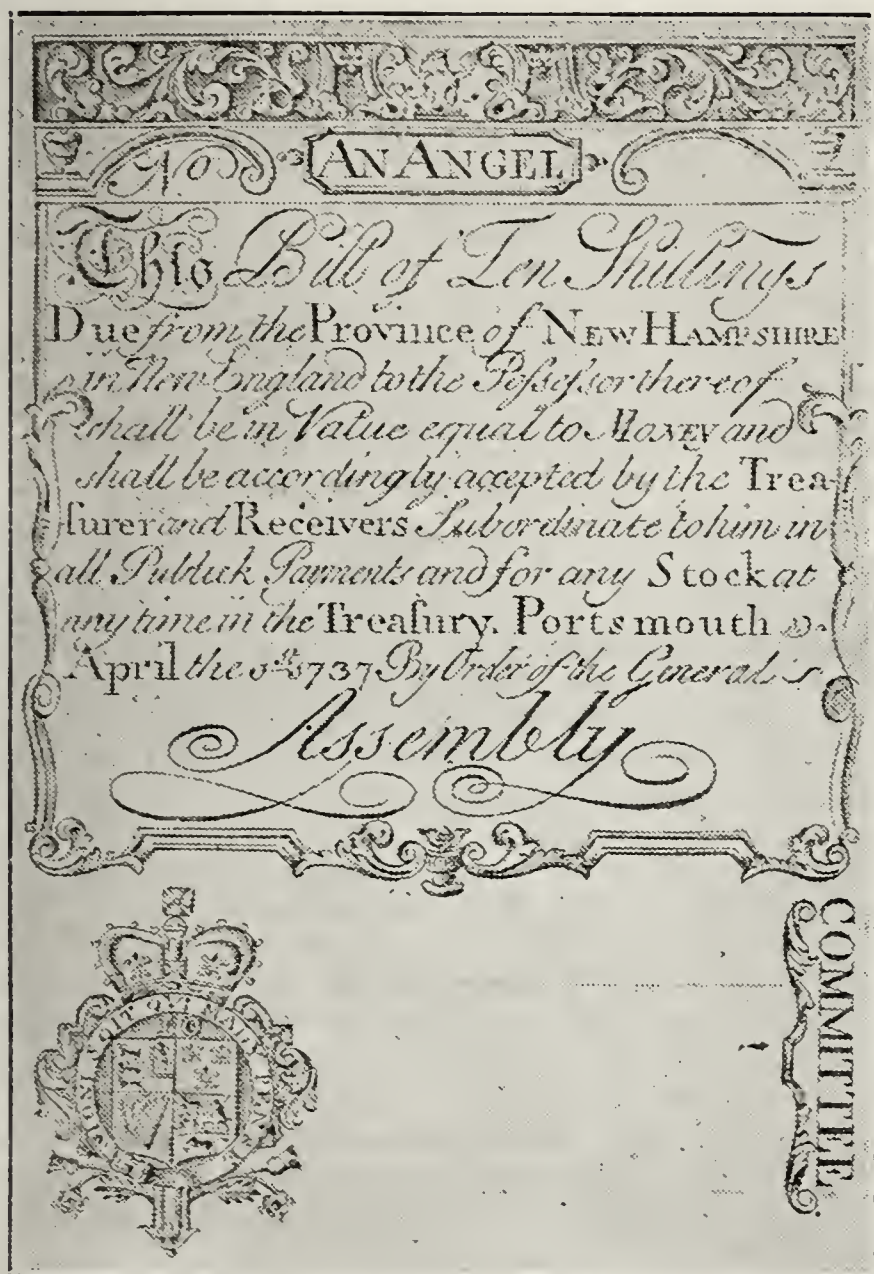 No AN ANGEL
This Bill of Ten Shillings
Due from the Province of NEW HAMPSHIRE
in New England to the Poſseſsor thereof
shall be in Value equal to MONEY and
shall be accordingly accepted by the Trea-
ſurer and Receivers Subordinate to him in
all Publick Payments and for any Stock at
any time in the Treaſury. Portsmouth
April the 1737 By Order of the General
Assembly
HONI SOIT QUI MAL Y PENSE
COMMITTEE